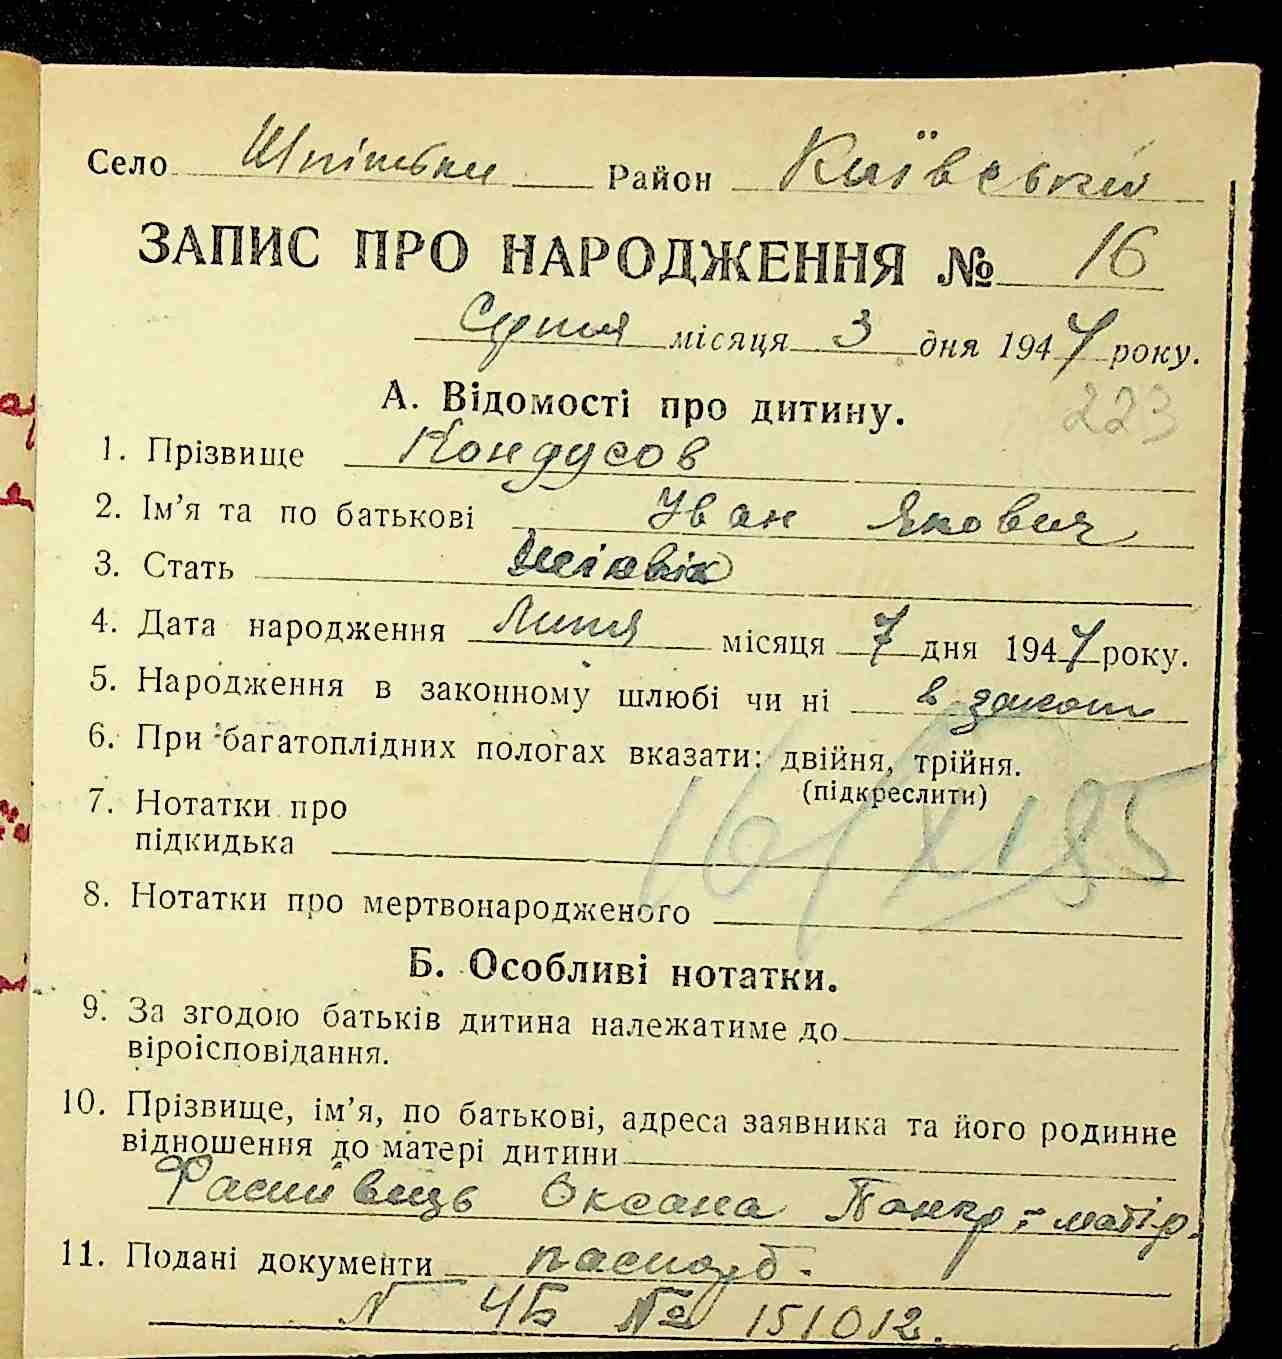 Село Шпітьки Район Київський
ЗАПИС ПРО НАРОДЖЕННЯ № 16
Серпня місяця 3 дня 194 року.
А. Відомості про дитину.
223
1. Прізвище Кондусов
2. Ім’я та по батькові Іван Якович
3. Стать
4. Дата народження Липня місяця 7 дня 194 року.
5. Народження в законному шлюбі чи ні в закон
6. При багатоплідних пологах вказати: двійня, трійня.
(підкреслити)
7. Нотатки про
підкидька
8. Нотатки про мертвонародженого
Б. Особливі нотатки.
9. За згодою батьків дитина належатиме до
віроісповідання.
10. Прізвище, ім’я, по батькові, адреса заявника та його родинне
відношення до матері дитини
Оксана Панкр. - матір.
11. Подані документи паспорт.
ЧБ № 151012.